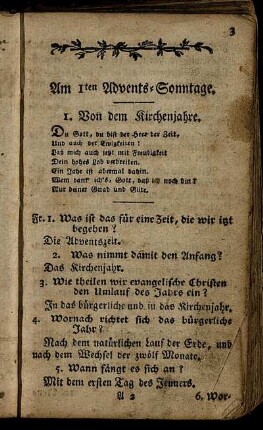 3
Am 1ten Advents-Sonntage.
1. Von dem Kirchenjahre.
Du Gott, du bist der Herr der Zeit,
Und auch der Ewigkeiten!
Laß mich auch jetzt mit Freudigkeit
Dein hohes Lob verbreiten.
Ein Jahr ist abermal dahin.
Wem dank' ich's, Gott, daß ich noch bin?
Nur deiner Gnad und Güte.
Fr. 1. Was ist das für eine Zeit, die wir itzt
begehen?
Die Adventszeit.
2. Was nimmt damit den Anfang?
Das Kirchenjahr.
3. Wie theilen wir evangelische Christen
den Umlauf des Jahrs ein?
In das bürgerliche und in das Kirchenjahr.
4. Wornach richtet sich das bürgerliche
Jahr?
Nach dem natürlichen Lauf der Erde, und
nach dem Wechsel der zwölf Monate.
5. Wann fängt es sich an?
Mit dem ersten Tag des Jenners.
A 2 6. Wor-